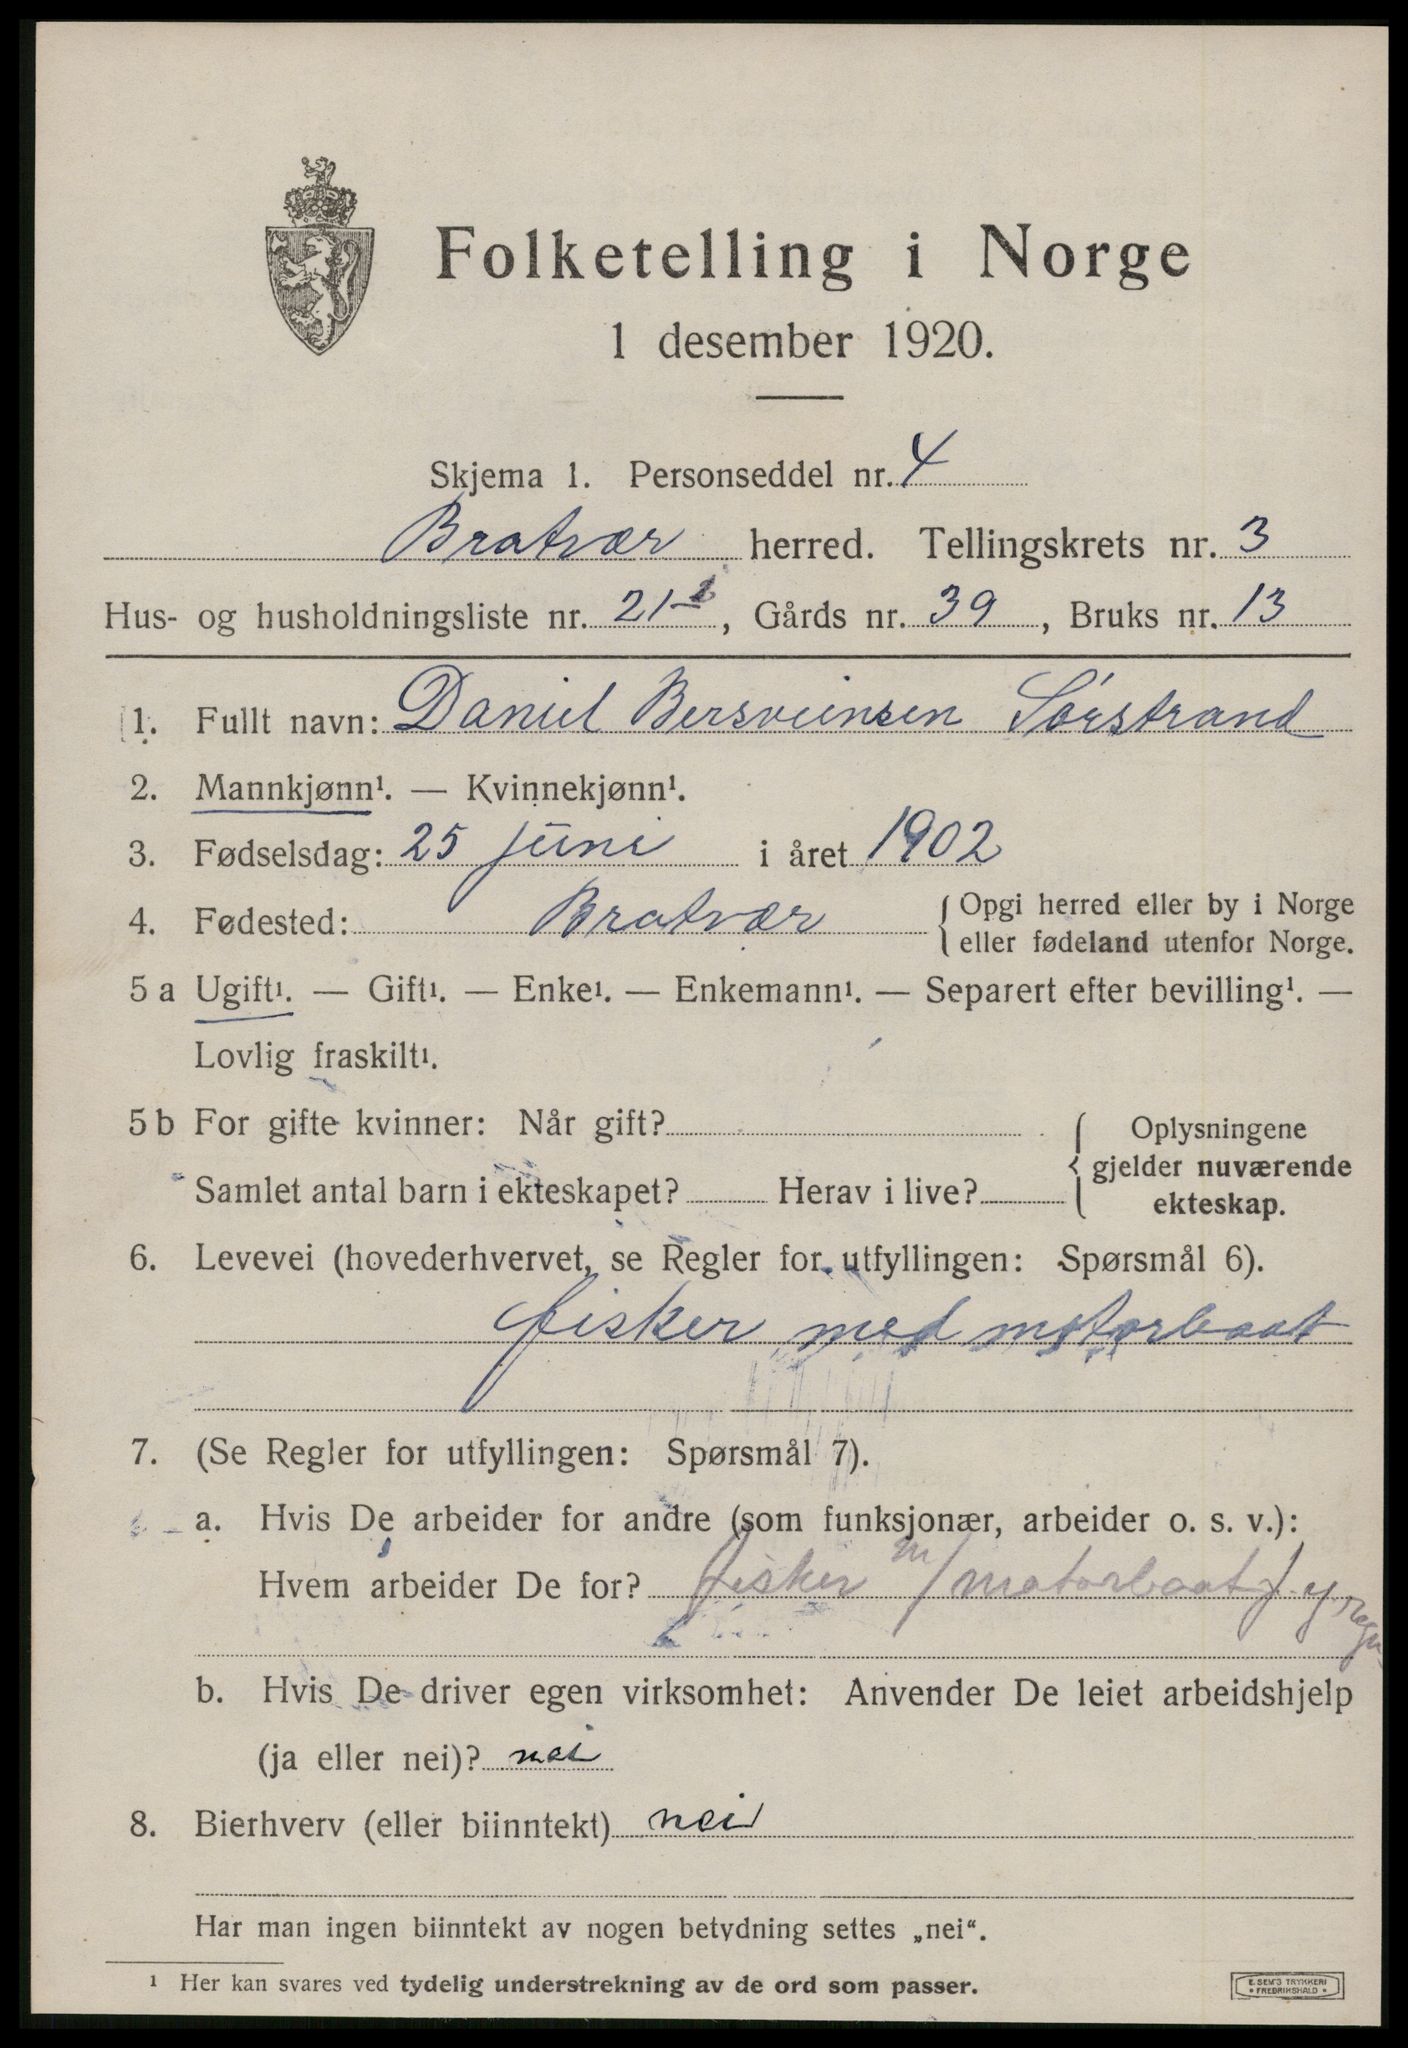 Folketelling i Norge
1 desember 1920.
Skjema 1. Personseddel nr. 4
Bratvær herred. Tellingskrets nr. 3
Hus- og husholdningsliste nr. 21-1, Gårds nr. 39, Bruks nr. 13
1. Fullt navn: Daniel Bersveinsen Sörstrand
2. Mannkjønn¹. — Kvinnekjønn¹.
3. Fødselsdag: 25 juni i året 1902
4. Fødested: Bratvær { Opgi herred eller by i Norge
eller fødeland utenfor Norge.
5 a Ugift¹. — Gift¹. — Enke¹. — Enkemann¹. — Separert efter bevilling¹. —
Lovlig fraskilt¹.
5 b For gifte kvinner: Når gift?
Samlet antal barn i ekteskapet? Herav i live?
Oplysningene
gjelder nuværende
ekteskap.
6. Levevei (hovederhvervet, se Regler for utfyllingen: Spørsmål 6).
fisker med motorbaat
7. (Se Regler for utfyllingen: Spørsmål 7).
a. Hvis De arbeider for andre (som funksjonær, arbeider o. s. v.):
Hvem arbeider De for? fisker m/motorbaat f. eg. regn.
b. Hvis De driver egen virksomhet: Anvender De leiet arbeidshjelp
(ja eller nei)? nei
8. Bierhverv (eller biinntekt) nei
Har man ingen biinntekt av nogen betydning settes „nei“.
¹ Her kan svares ved tydelig understrekning av de ord som passer.
E. SEM'S TRYKKERI
FREDRIKSHALD